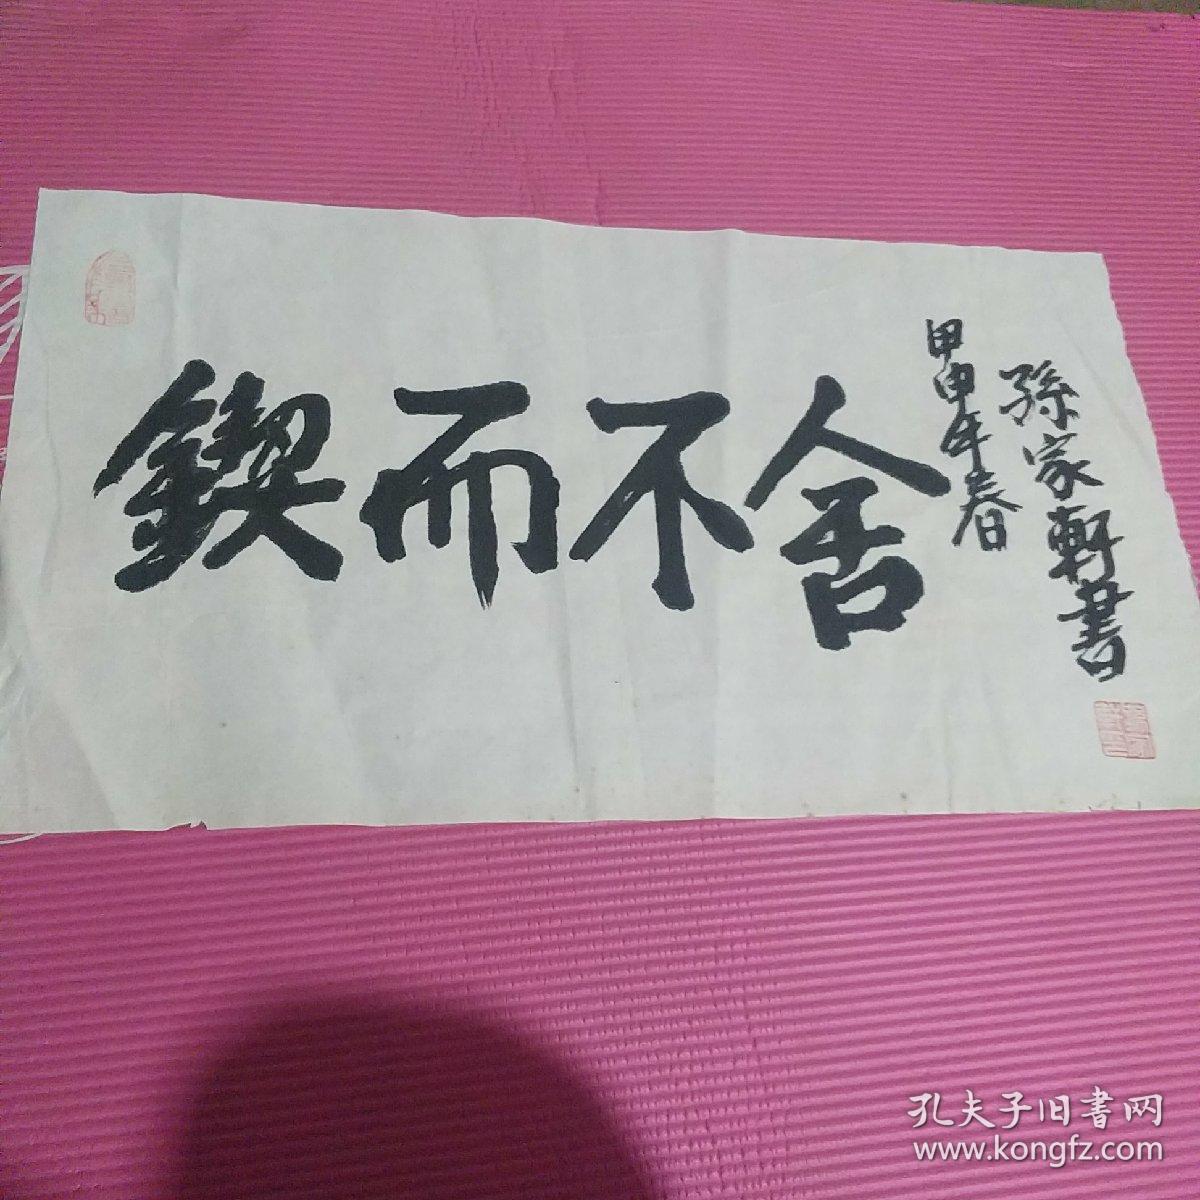 锲而不舍
甲申年春
孫家軒書
孔夫子旧書网
www.kongfz.com